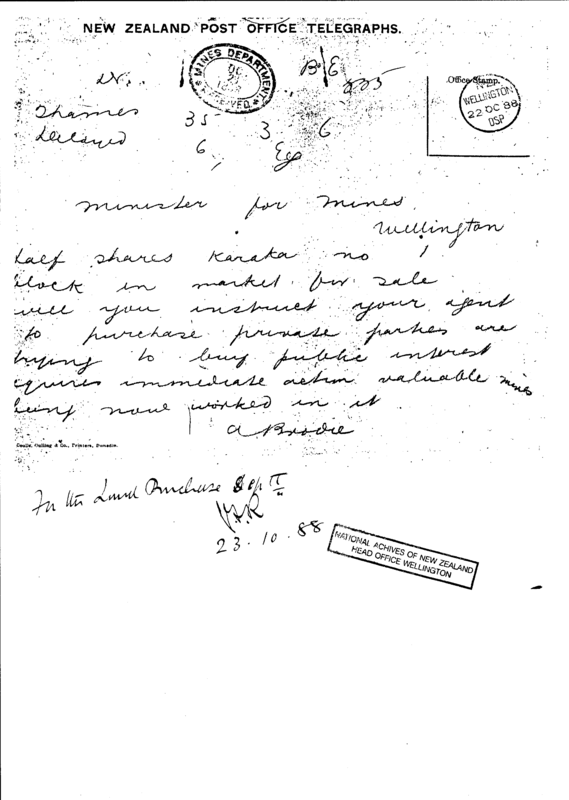 NEW ZEALAND POST OFFICE TELEGRAPHS.
MINES DEPARTMENT
RECEIVED
Office Stamp.
WELLINGTON
22 OC 88
Thames
35 3 6
Delayed
6
minister for mines
Wellington
half shares Karaka no 1
block in market for sale
will you instruct your agent
to purchase private parties are
trying to buy public interest
equires immediate action valuable mines
being now worked in it
A Brodie
For the Land Purchase Dept
23.10.88
NATIONAL ACHIVES OF NEW ZEALAND
HEAD OFFICE WELLINGTON